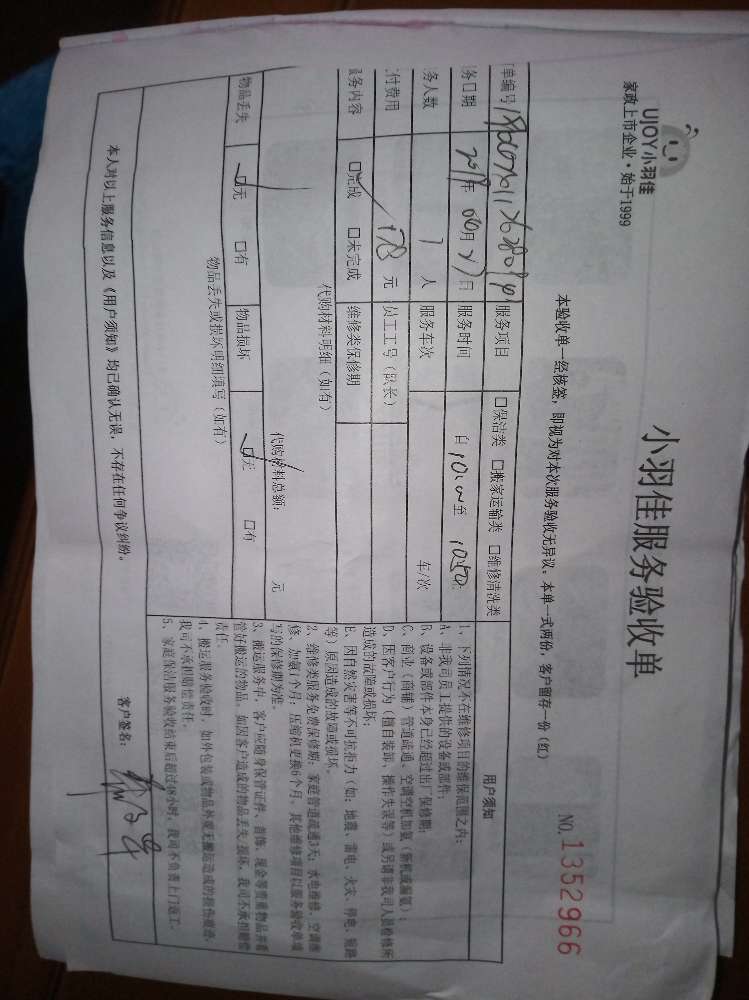 UJOY小羽佳
家政上市企业·始于1999
小羽佳服务验收单
本验收单一经核签，即视为对本次服务验收无异议。本单一式两份，客户留存一份（红）
NO.1352966
单编号
服务项目 □保洁类 □搬家运输类 □维修清洗类
务日期 年 月 日 服务时间 自 至 10:50
务人数 1 人 服务车次 车/次
付费用 178 元 员工工号（队长）
服务内容 □完成 □未完成 维修类保修期
代购材料明细（如有）
代购材料总额： 元
物品丢失 □无 □有 物品损坏 □无 □有
物品丢失或损坏明细填写（如有）
用户须知
1、下列情况不在维修项目的维保范围之内：
A、非我司员工提供的设备或部件；
B、设备或部件本身已经超过出厂保修期；
C、商业（商铺）管道疏通、空调空机加氨（新机或漏氨）；
D、因客户行为（擅自装卸、操作失误等）或另请非我司人员检修所
造成的故障或损坏；
E、因自然灾害等不可抗拒力（如：地震、雷电、火灾、停电、短路
等）原因造成的故障或损坏。
2、维修类服务免费保修期：家庭管道疏通3天；水电维修、空调维
修、加氨1个月；压缩机更换6个月，其他维修项目以服务验收单填
写的保修期为准。
3、搬运服务中，客户应随身保管证件、首饰、现金等贵重物品并看
管好搬运的物品，如因客户造成的物品丢失、损坏，我司不承担赔偿
责任。
4、搬运服务验收时，如外包装或物品外观无搬运造成的损伤痕迹，
我司不承担赔偿责任。
5、家庭保洁服务验收结束后超过48小时，我司不负责上门返工。
本人对以上服务信息以及《用户须知》均已确认无误，不存在任何争议纠纷。
客户签名：